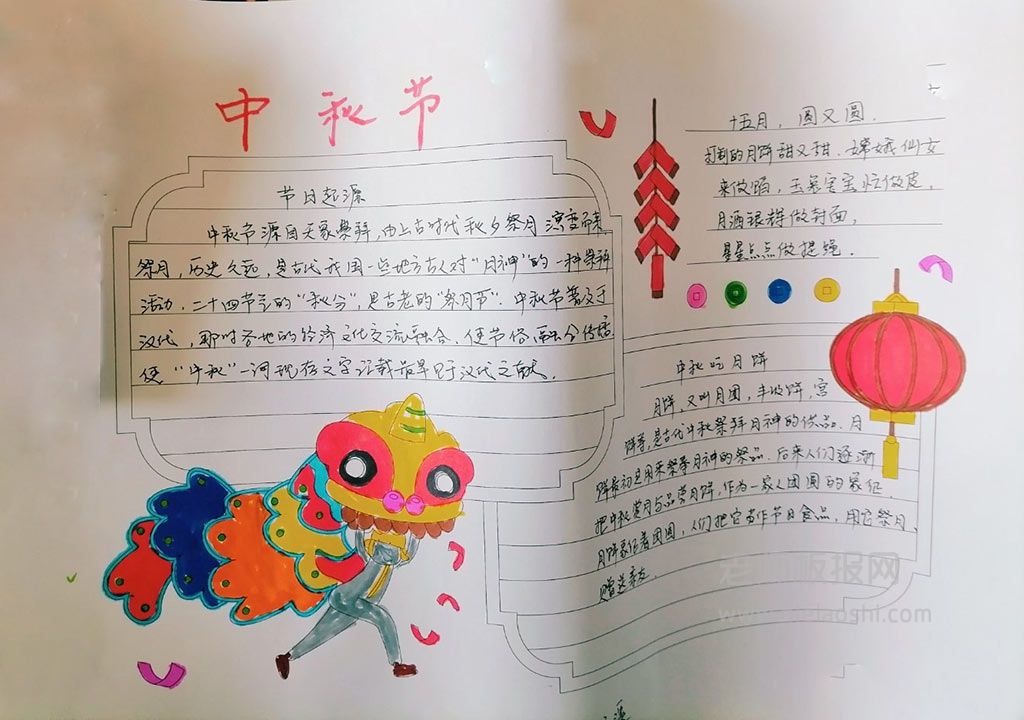 中秋节
节日起源
中秋节源自天象崇拜,由上古时代秋夕祭月演变而来
祭月,历史久远,是古代我国一些地方古人对“月神”的一种崇拜
活动,二十四节气的“秋分”,是古老的“祭月节”.中秋节普及于
汉代,那时各地的经济文化交流融合,使节俗融合传播.
使“中秋”一词现存文字记载最早见于汉代文献.
十五月,圆又圆.
打制的月饼甜又甜.嫦娥仙女
来做馅,玉兔宝宝忙做皮,
月洒银辉做封面,
星星点点做提绳.
中秋吃月饼
月饼,又叫月团,丰收饼,宫
饼等,是古代中秋祭拜月神的供品.月
饼最初是用来祭奉月神的祭品.后来人们逐渐
把中秋赏月与品尝月饼,作为一家人团圆的象征.
月饼象征着团圆,人们把它当作节日食品,用它祭月,
赠送亲友.
板报网
laoshi.com